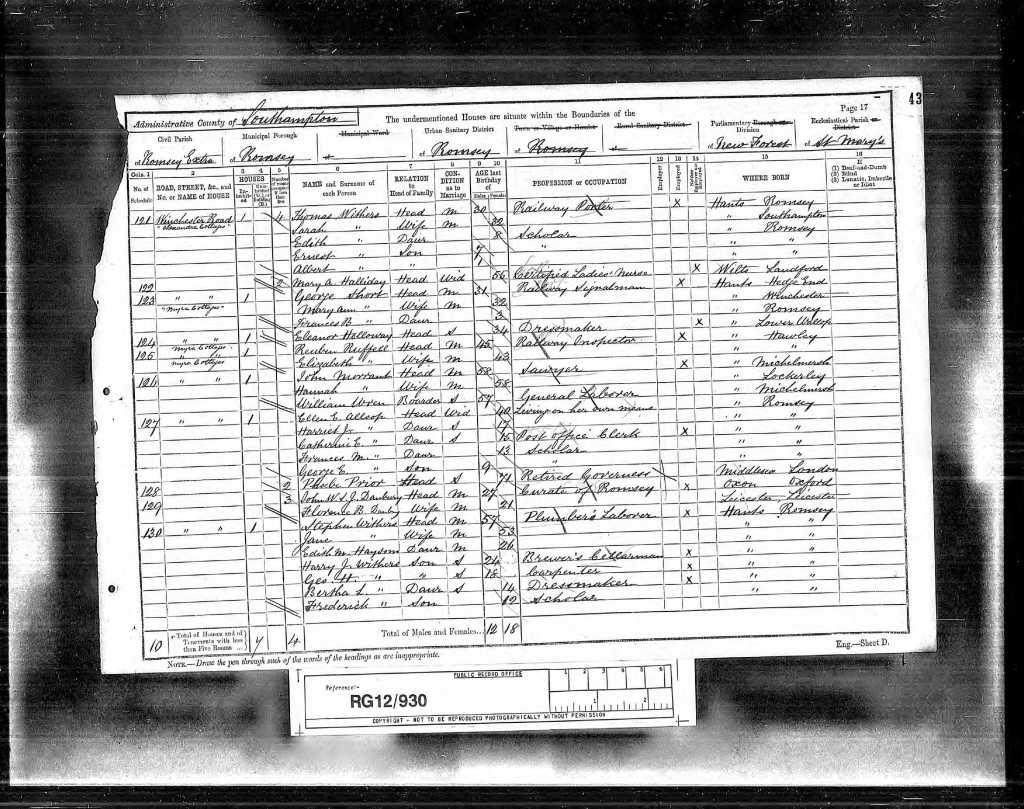 43
Administrative County of Southampton
The undermentioned Houses are situate within the Boundaries of the
Page 17
Civil Parish of Romsey Extra
Municipal Borough of Romsey
Municipal Ward of
Urban Sanitary District of Romsey
Town or Village or Hamlet of Romsey
Rural Sanitary District of
Parliamentary Borough or Division of New Forest
Ecclesiastical Parish or District of St Mary's
Cols. 1 2 3 4 5 6 7 8 9 10 11 12 13 14 15 16
No. of Schedule
ROAD, STREET, &c., and No. or NAME of HOUSE
HOUSES
NAME and Surname of each Person
RELATION to Head of Family
CONDITION as to Marriage
AGE last Birthday of
Males Females
PROFESSION or OCCUPATION
Employer
Employed
WHERE BORN
If (1) Deaf-and-Dumb (2) Blind (3) Lunatic, Imbecile or Idiot
121 Winchester Road 1 4 Thomas Withers Head M 30 Railway Porter X Hants Romsey
"Alexandra Cottages" Sarah " Wife M 32 " Southampton
Edith " Daur 8 Scholar " Romsey
Ernest " Son 7 " " "
Albert " " 1 " "
122 2 Mary A. Halliday Head Wid 56 Certified Ladies' Nurse X Wilts Landford
123 " " 1 George Short Head M 31 Railway Signalman X Hants Hedge End
"Myra Cottages" Mary Ann " Wife M 32 " Winchester
Frances B " Daur 3 " Romsey
124 " " 1 Eleanor Holloway Head S 34 Dressmaker X " Lower Wallop
Myra Cottages
125 " " 1 Reuben Ruffell Head M 45 Railway Inspector X " Hawley
Myra Cottages Elizabeth " Wife M 43 " "
126 " " 1 John Morrant Head M 58 Sawyer X " Michelmersh
Hannah " Wife M 58 " Lockerley
William Wren Boarder S 57 General Laborer " Michelmersh
127 " " 1 Ellen E. Allsop Head Wid 40 Living on her own means " Romsey
Harriet J. " Daur S 17 " "
Catherine E. " Daur S 15 Post Office Clerk X " "
Frances M. " Daur 13 Scholar " "
George E. " Son 9 " " "
128 2 Phoebe Prior Head S 71 Retired Governess Middlesex London
129 3 John W. S. J. Danbury Head M 27 Curate of Romsey X Oxon Oxford
Florence B. Danby Wife M 21 Leicester, Leicester
130 " " 1 Stephen Withers Head M 57 Plumber's Laborer X Hants Romsey
Jane " Wife M 53 " "
Edith M. Haysom Daur M 26 " "
Harry J. Withers Son S 24 Brewer's Cellarman X " "
Geo. H. " " S 18 Carpenter X " "
Bertha L. " Daur S 14 Dressmaker X " "
Frederick " Son 12 Scholar " "
10 Total of Houses and of Tenements with less than Five Rooms 7 4 Total of Males and Females... 12 18
NOTE.—Draw the pen through such of the words of the headings as are inappropriate.
Eng.—Sheet D.
PUBLIC RECORD OFFICE
Reference:-
RG12/930
1 2 3 4 5 6
1 2
COPYRIGHT - NOT TO BE REPRODUCED PHOTOGRAPHICALLY WITHOUT PERMISSION